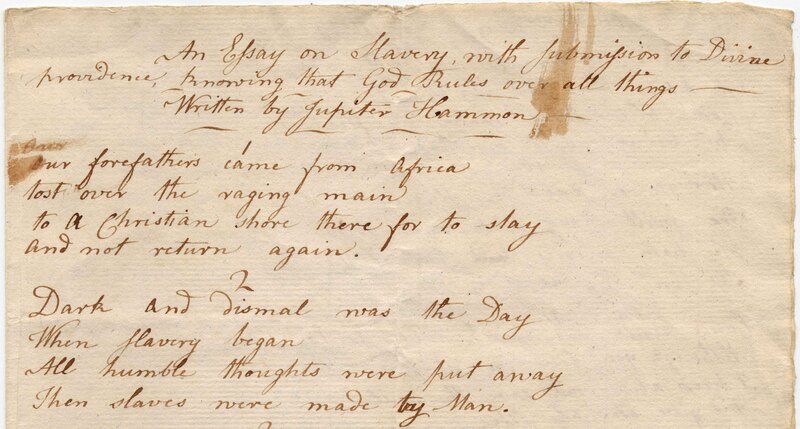 An Essay on Slavery, with submission to Divine
providence, knowing that God Rules over all things —
Written by Jupiter Hammon
1
Our forefathers came from africa
tost over the raging main
to a Christian shore there for to stay
and not return again.
2
Dark and dismal was the Day
When slavery began
All humble thoughts were put away
Then slaves were made by Man.